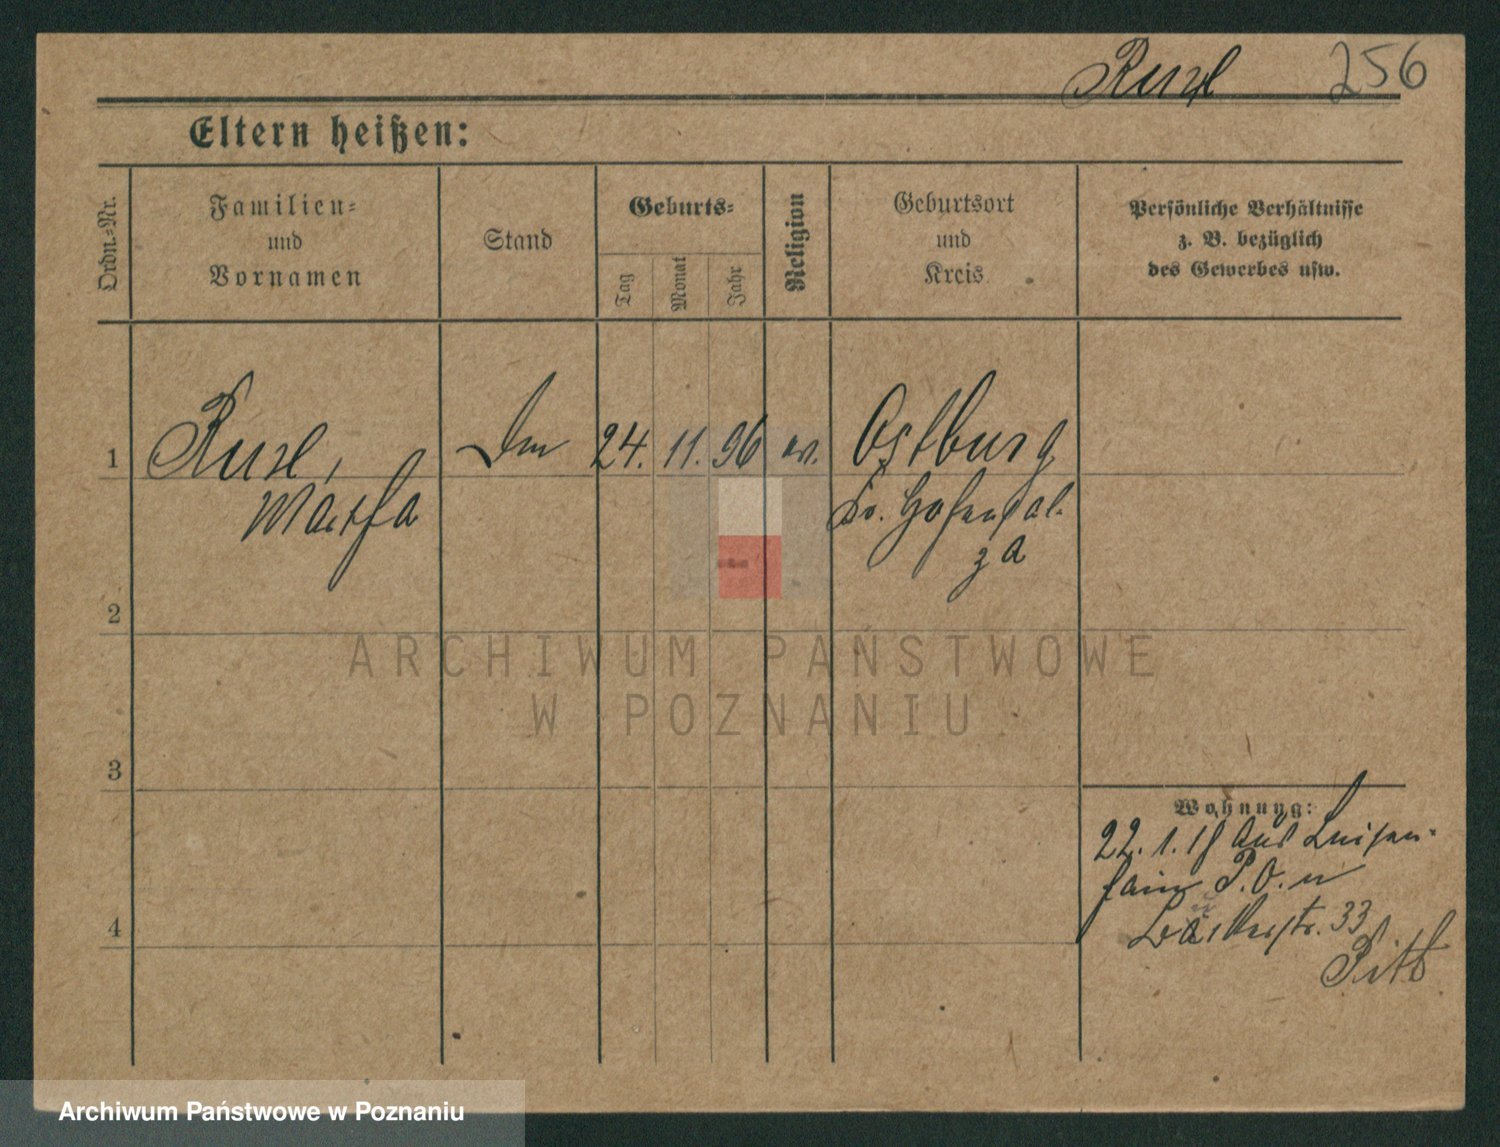 256
Eltern heißen:
Ordn.-Nr.
Familien-
und
Vornamen
Stand
Geburts-
Tag
Monat
Jahr
Religion
Geburtsort
und
Kreis
Persönliche Verhältnisse
z. B. bezüglich
des Gewerbes usw.
1
24. 11. 96 ev. Ostburg
Martha
Kr. Hohensal-
za
2
ARCHIWUM PAŃSTWOWE
W POZNANIU
3
Wohnung:
22. 1. 18 aus Luisen-
hain P.O. n
33
4
Archiwum Państwowe w Poznaniu